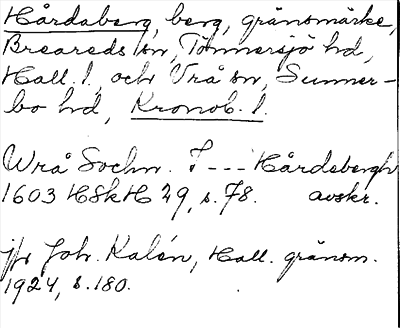 Hårdaberg, berg, gränsmärke,
Breareds sn, Tönnersjö hd,
Hall. l. och Vrå sn, Sunner-
bo hd, Kronob. l.
Wrå Sochn. I --- Hårdebergh
1603 HSkH 29, s. 78. avskr.
jfr Joh. Kalén, Hall. gränsm.
1924, s. 180.